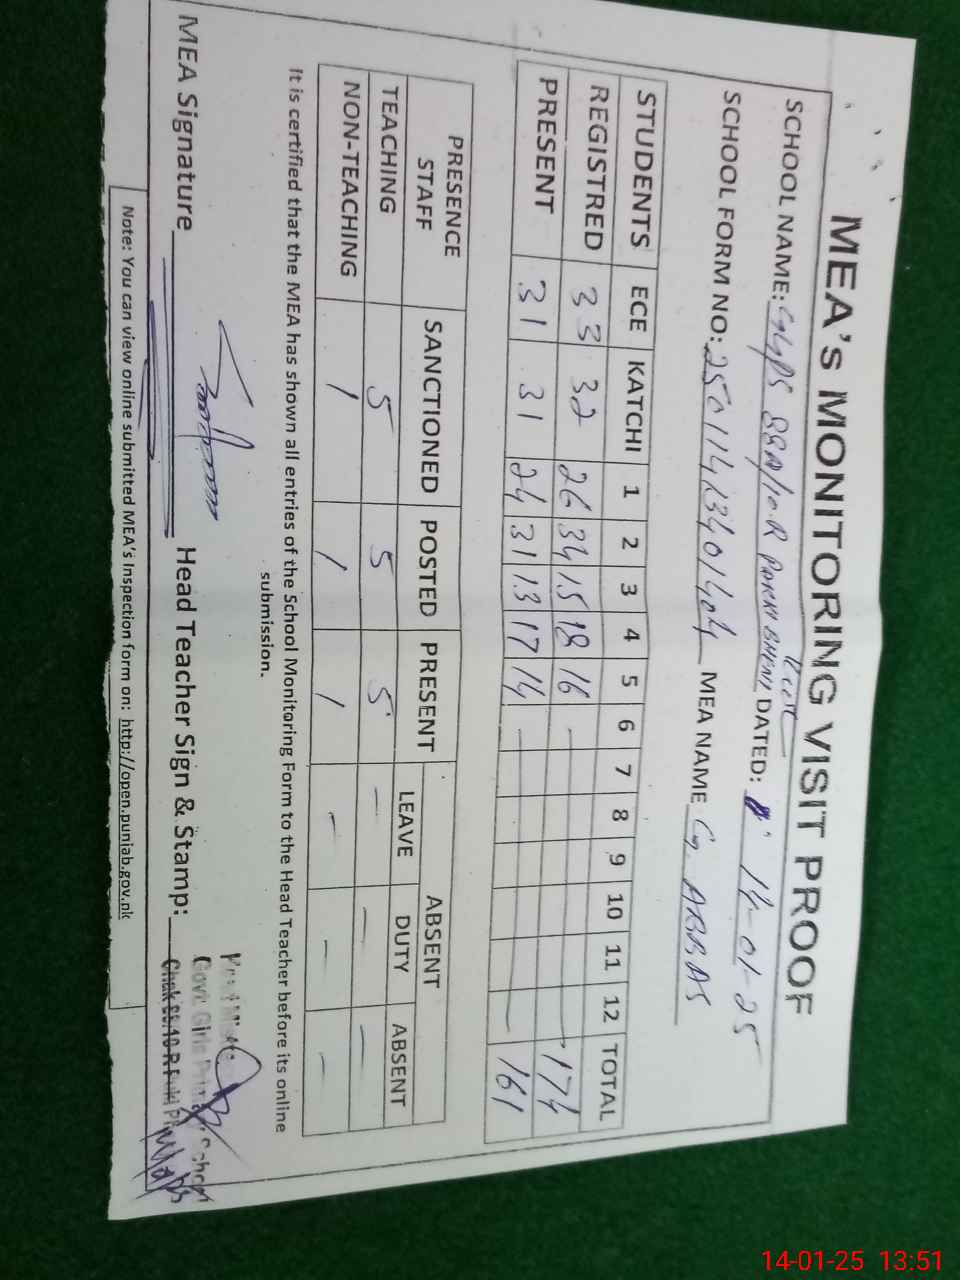 MEA's MONITORING VISIT PROOF
SCHOOL NAME: GGPS 88A/10-R PAKKI DATED: 14-01-25
SCHOOL FORM NO: MEA NAME G. ABBAS
STUDENTS ECE KATCHI 1 2 3 4 5 6 7 8 9 10 11 12 TOTAL
REGISTRED 33 32 26 34 15 18 16 — 174
PRESENT 31 31 24 31 13 17 14 — 161
PRESENCE STAFF SANCTIONED POSTED PRESENT ABSENT
LEAVE DUTY ABSENT
TEACHING 5 5 5 — — —
NON-TEACHING 1 1 1 — — —
It is certified that the MEA has shown all entries of the School Monitoring Form to the Head Teacher before its online
submission.
MEA Signature Head Teacher Sign & Stamp:
Govt Girls Primary School
Chak
Note: You can view online submitted MEA's Inspection form on: http://open.punjab.gov.pk
14-01-25 13:51